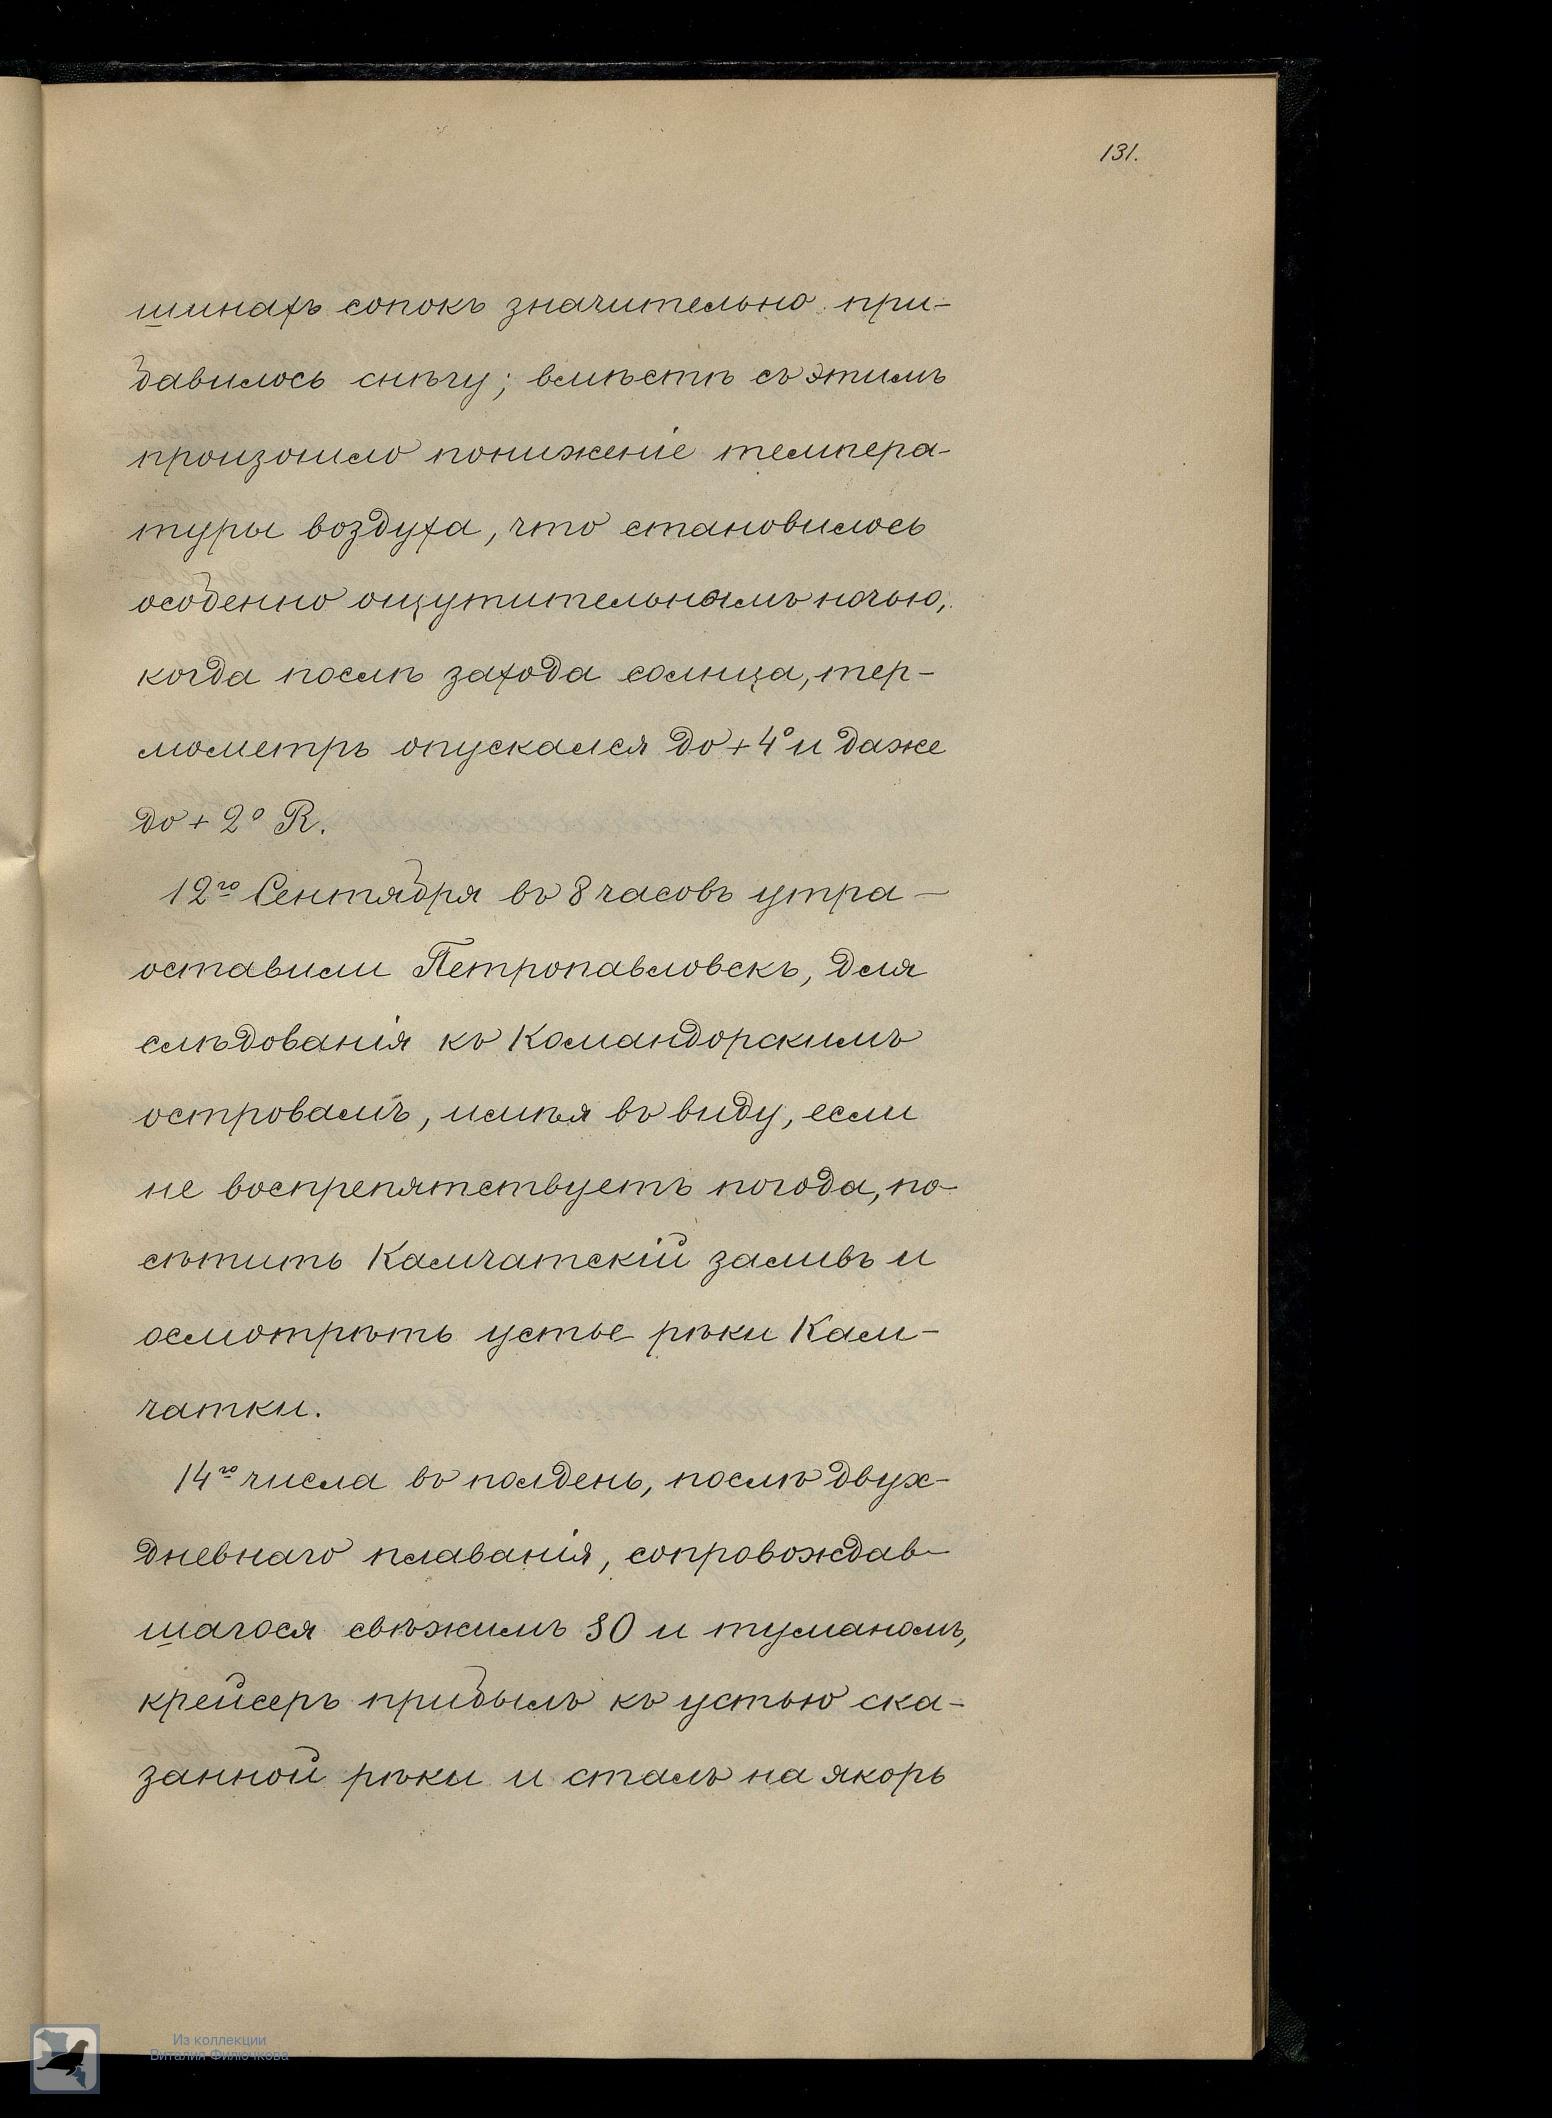 131.
шинахъ сопокъ значительно при-
давилось снѣгу; вмѣстѣ съ этимъ
произошло пониженіе темпера-
туры воздуха, что становилось
особенно ощутительнымъ ночью,
когда послѣ захода солнца, тер-
мометръ опускался до +4° и даже
до +2° R.
12го Сентября въ 8 часовъ утра —
оставили Петропавловскъ, для
слѣдованія къ Командорскимъ
островамъ, имѣя въ виду, если
не воспрепятствуетъ погода, по-
сѣтить Камчатскій заливъ и
осмотрѣть устье рѣки Кам-
чатки.
14го числа въ полдень, послѣ двух-
дневнаго плаванія, сопровождав-
шагося свѣжимъ SO и туманомъ,
крейсеръ прибылъ къ устью ска-
занной рѣки и сталъ на якорь
Из коллекции
Виталия Филючкова